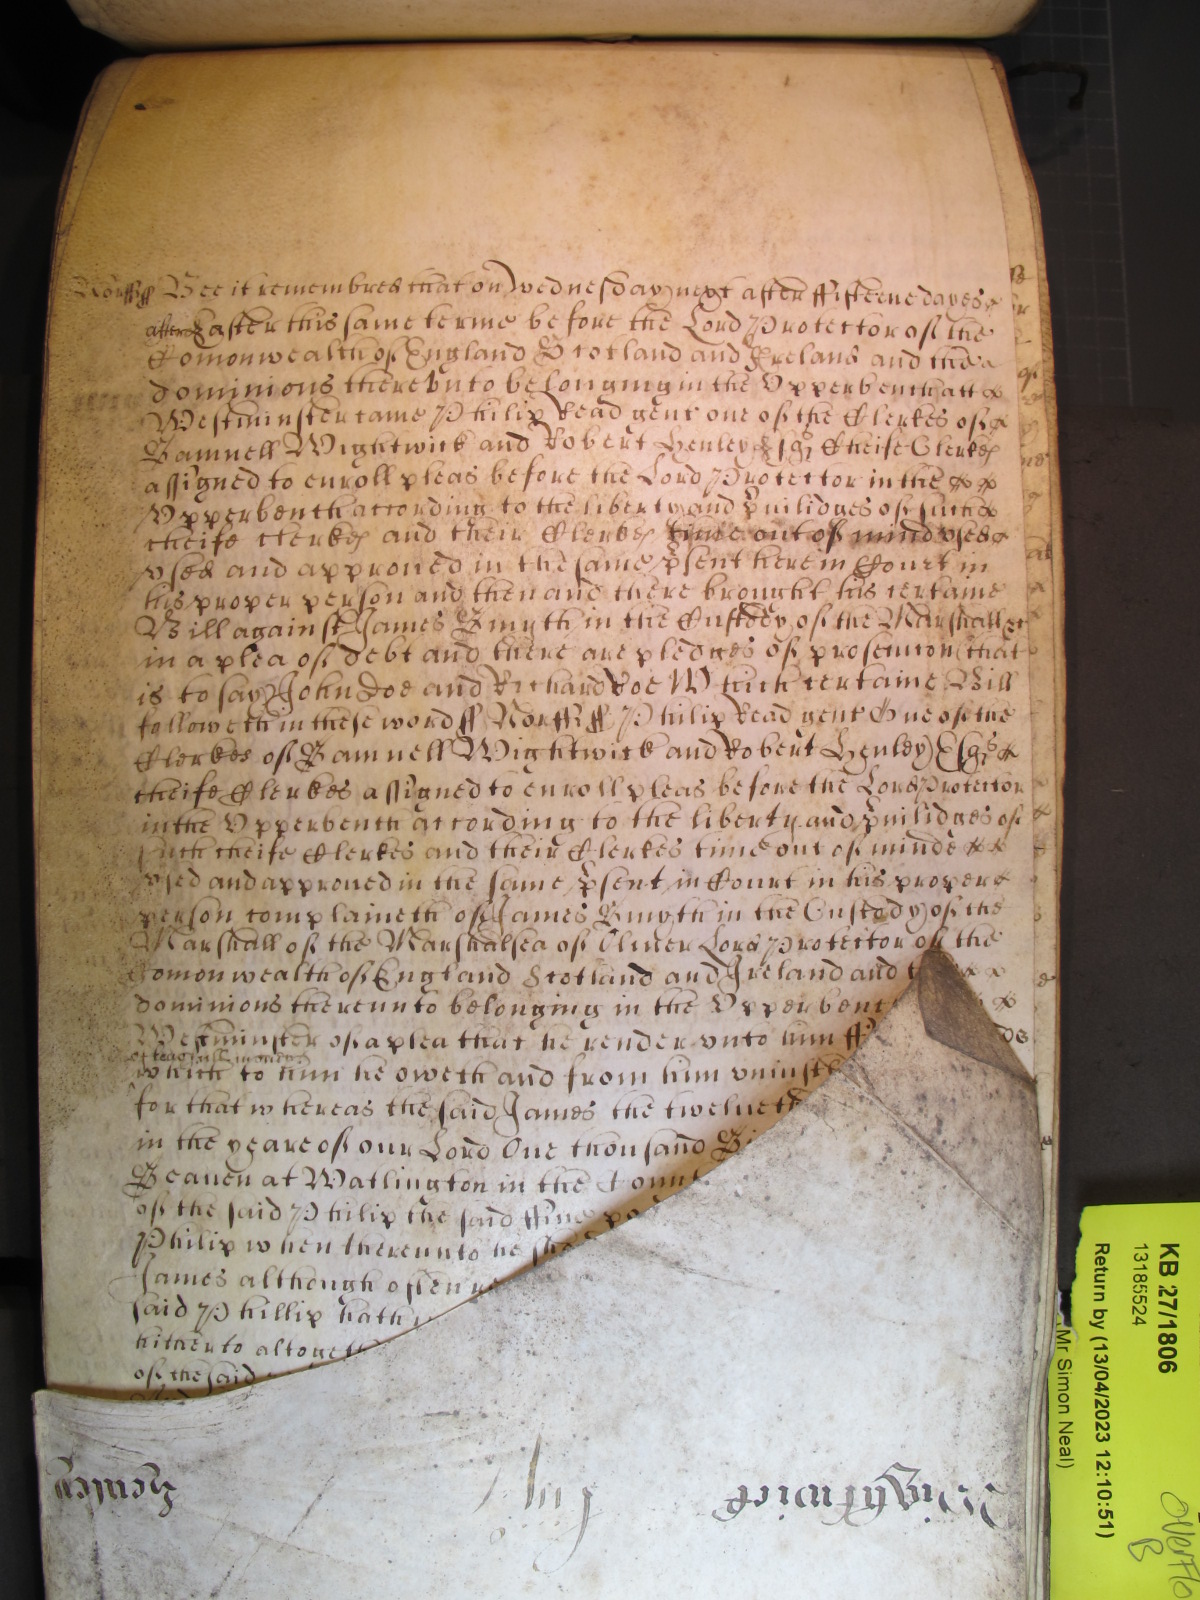 Norff ss Bee it remembred that on wednesday next after ffifteene dayes
after this same terme before the Lord Protector of the
Comonwealth of England Scotland and Ireland and the
dominions therevnto belonging in the Vpperbench att
Westminster came Philip Read gent one of the Clerkes of
Samuell Wightwick and Robert Henley Esqrs Cheife Clerkes
assigned to enroll pleas before the Lord Protector in the
Vpperbench according to the liberty and priuilidges of such
cheife clerkes and their Clerkes time out of mind vsed
vsed and approued in the same psent here in Court in
his proper person and then and there brought his certaine
Bill against James Smyth in the Custody of the Marshall &c
in a plea of debt and there are pledges of prosecution that
is to say John Doe and Richard Roe Which certaine Bill
followeth in these words ss Norff ss Philip Read gent One of the
Clerkes of Samuell Wightwick and Robert Henley Esqrs
cheife Clerkes assigned to enroll pleas before the Lord Protector
in the Vpperbench according to the liberty and priuilidges of
such cheife Clerkes and their Clerkes time out of minde
vsed and approued in the same psent in Court in his proper
person complaineth of James Smyth in the Custody of the
Marshall of the Marshalsea of Oliuer Lord Protector of the
Comonwealth of England Scotland and Ireland and
dominions therevnto belonging in the Vpperbenc
Westminster of a plea that he render vnto him ff
of lawfull money
which to him he oweth and from him vniustl
for that whereas the said James the twelueth
in the yeare of our Lord One thousand Si
Seauen at Watlington in the Count
of the said Philip the said ffiue po
Philip when therevnto he sha
James although often re
said Phillip hath
hitherto altogeth
of the said
Henley
Wightwick
KB 27/1806
13185524
Return by (13/04/2023 12:10:51)
Mr Simon Neal)
Overflo
B